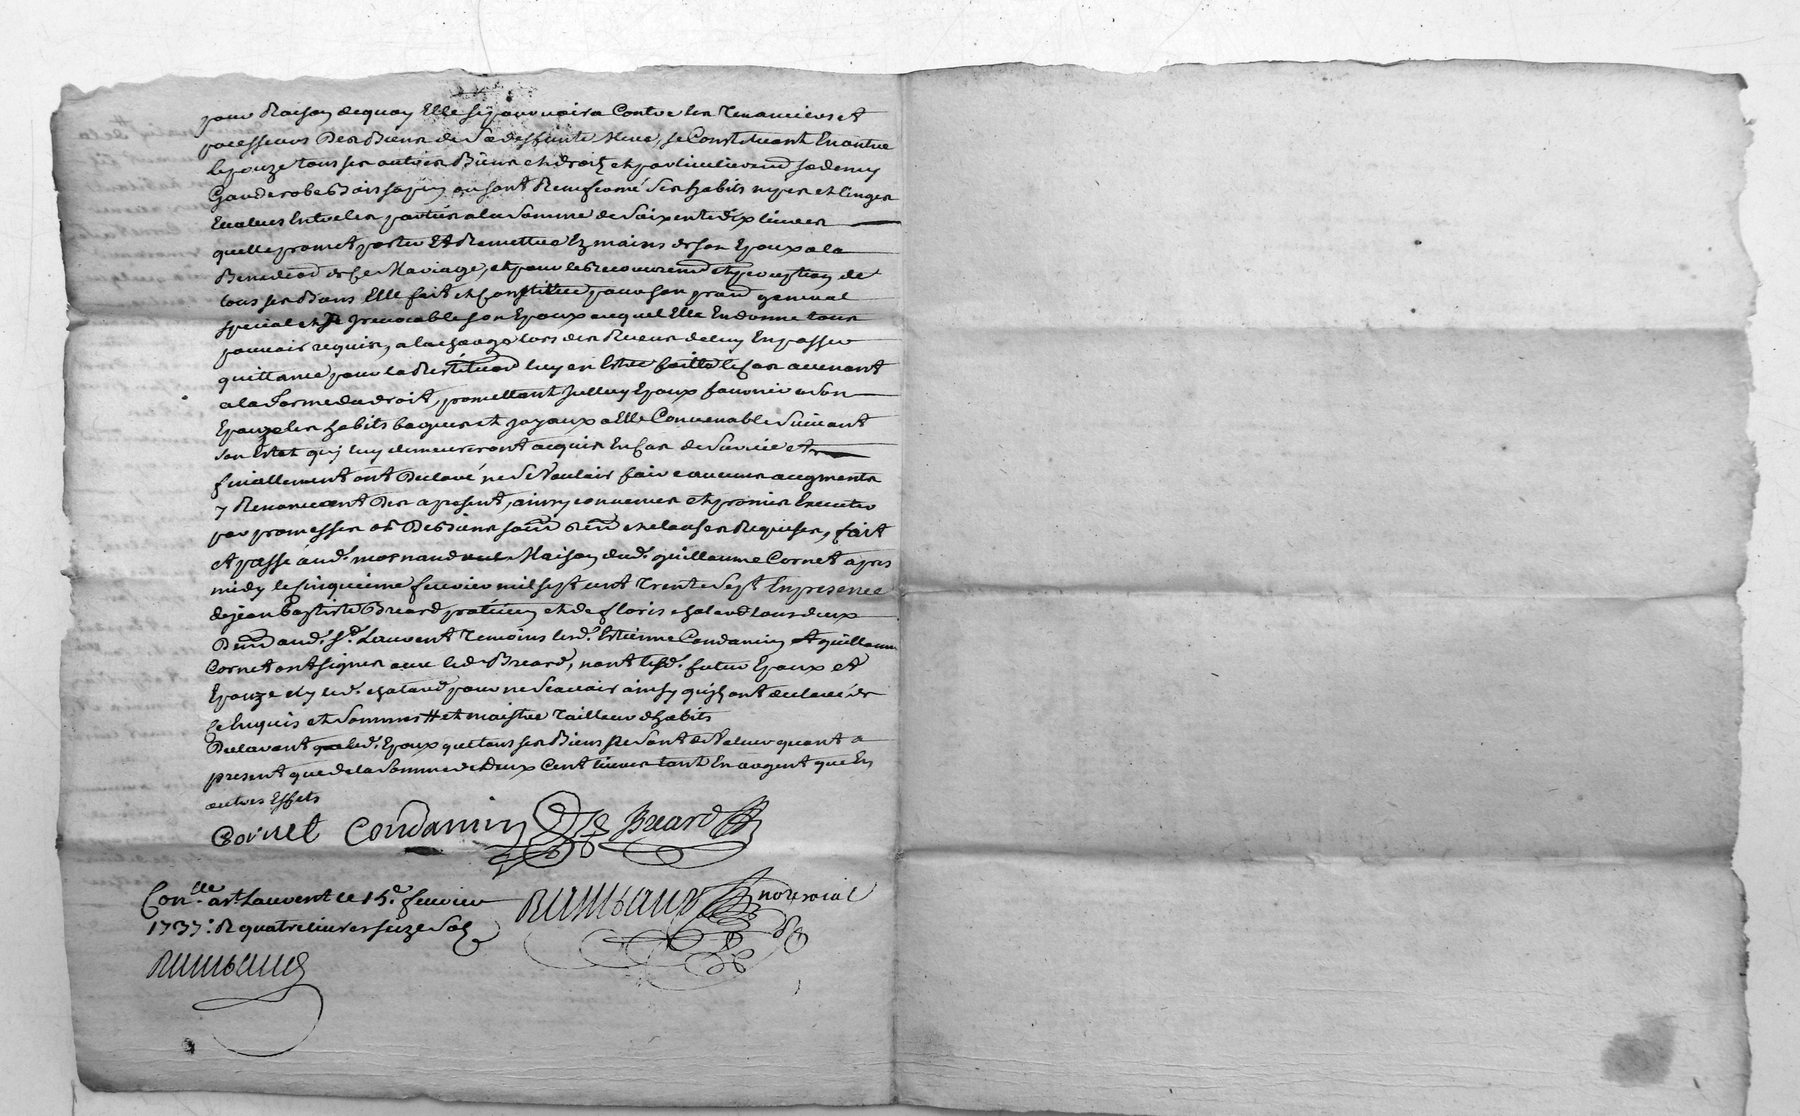 pour Raison dequoy Elle sy pourvoira Contre les Tenanciers et
pocesseurs Des Biens de Sa deffunte Mere, se Constituant En outre
lepouze tous ses autres Biens et droitz et particulierem.t sa demy
Garderobe Bois sapin ou sont Renfermé Ses habits nipes et linges
Evalues Entre les parties a la Somme de Soixente dix livres
quelle promet porter Et Remettre Ez mains de son Epoux a la
Benedion de Ce Mariage, et pour le Recouvrem.t et perception de
tous ses Biens Elle fait et Constitue pour son procur general
special et Irrevocable son Epoux auquel Elle En donne tous
pouvoir requis, a la charge lors des Receus de luy En passer
quittance pour la Restitution luy en Estre faitte le Cas avenant
a la forme du droit, promettant Jcelluy Epoux fournir a Son
Epouze les habits bagues et joyaux a Elle Convenable Suivant
Son Estat quj luy demeureront acquis En Cas de Survie et
finallement ont Declaré ne Se Vouloir faire aucuns augments
y Renonceant Des a present, ainsy convenus et promis Executer
par promesses ob. De Biens soum renon et clauses Requises, fait
Et passé aud. mornand Maison dud. guillaume Cornet apres
midy le Cinquieme fevrier mil sept cent Trente Sept En presence
de jean Baptiste Breard praticien et de floris chatard tous deux
Dem.t aud. S.t Laurent Temoins lesd. Estienne Condamin Et guillaume
Cornet ont signes avec led. Breard, non lesd. futur Epoux et
Epouze ny led. chatard pour ne Scavoir ainsy quils ont declaré de
Ce Enquis et Sommes # et maistre Tailleur dhabits
Declarant led. Epoux que tous ses Biens ne Sont de Valeur quant a
present que de la Somme de Deux Cent livres tant En argent que En
autres Effets
Cornet Condamin Breard
Con.lle a st Laurent le 15.e fevrier
1737: R quatre livres seize Solz
not. royal